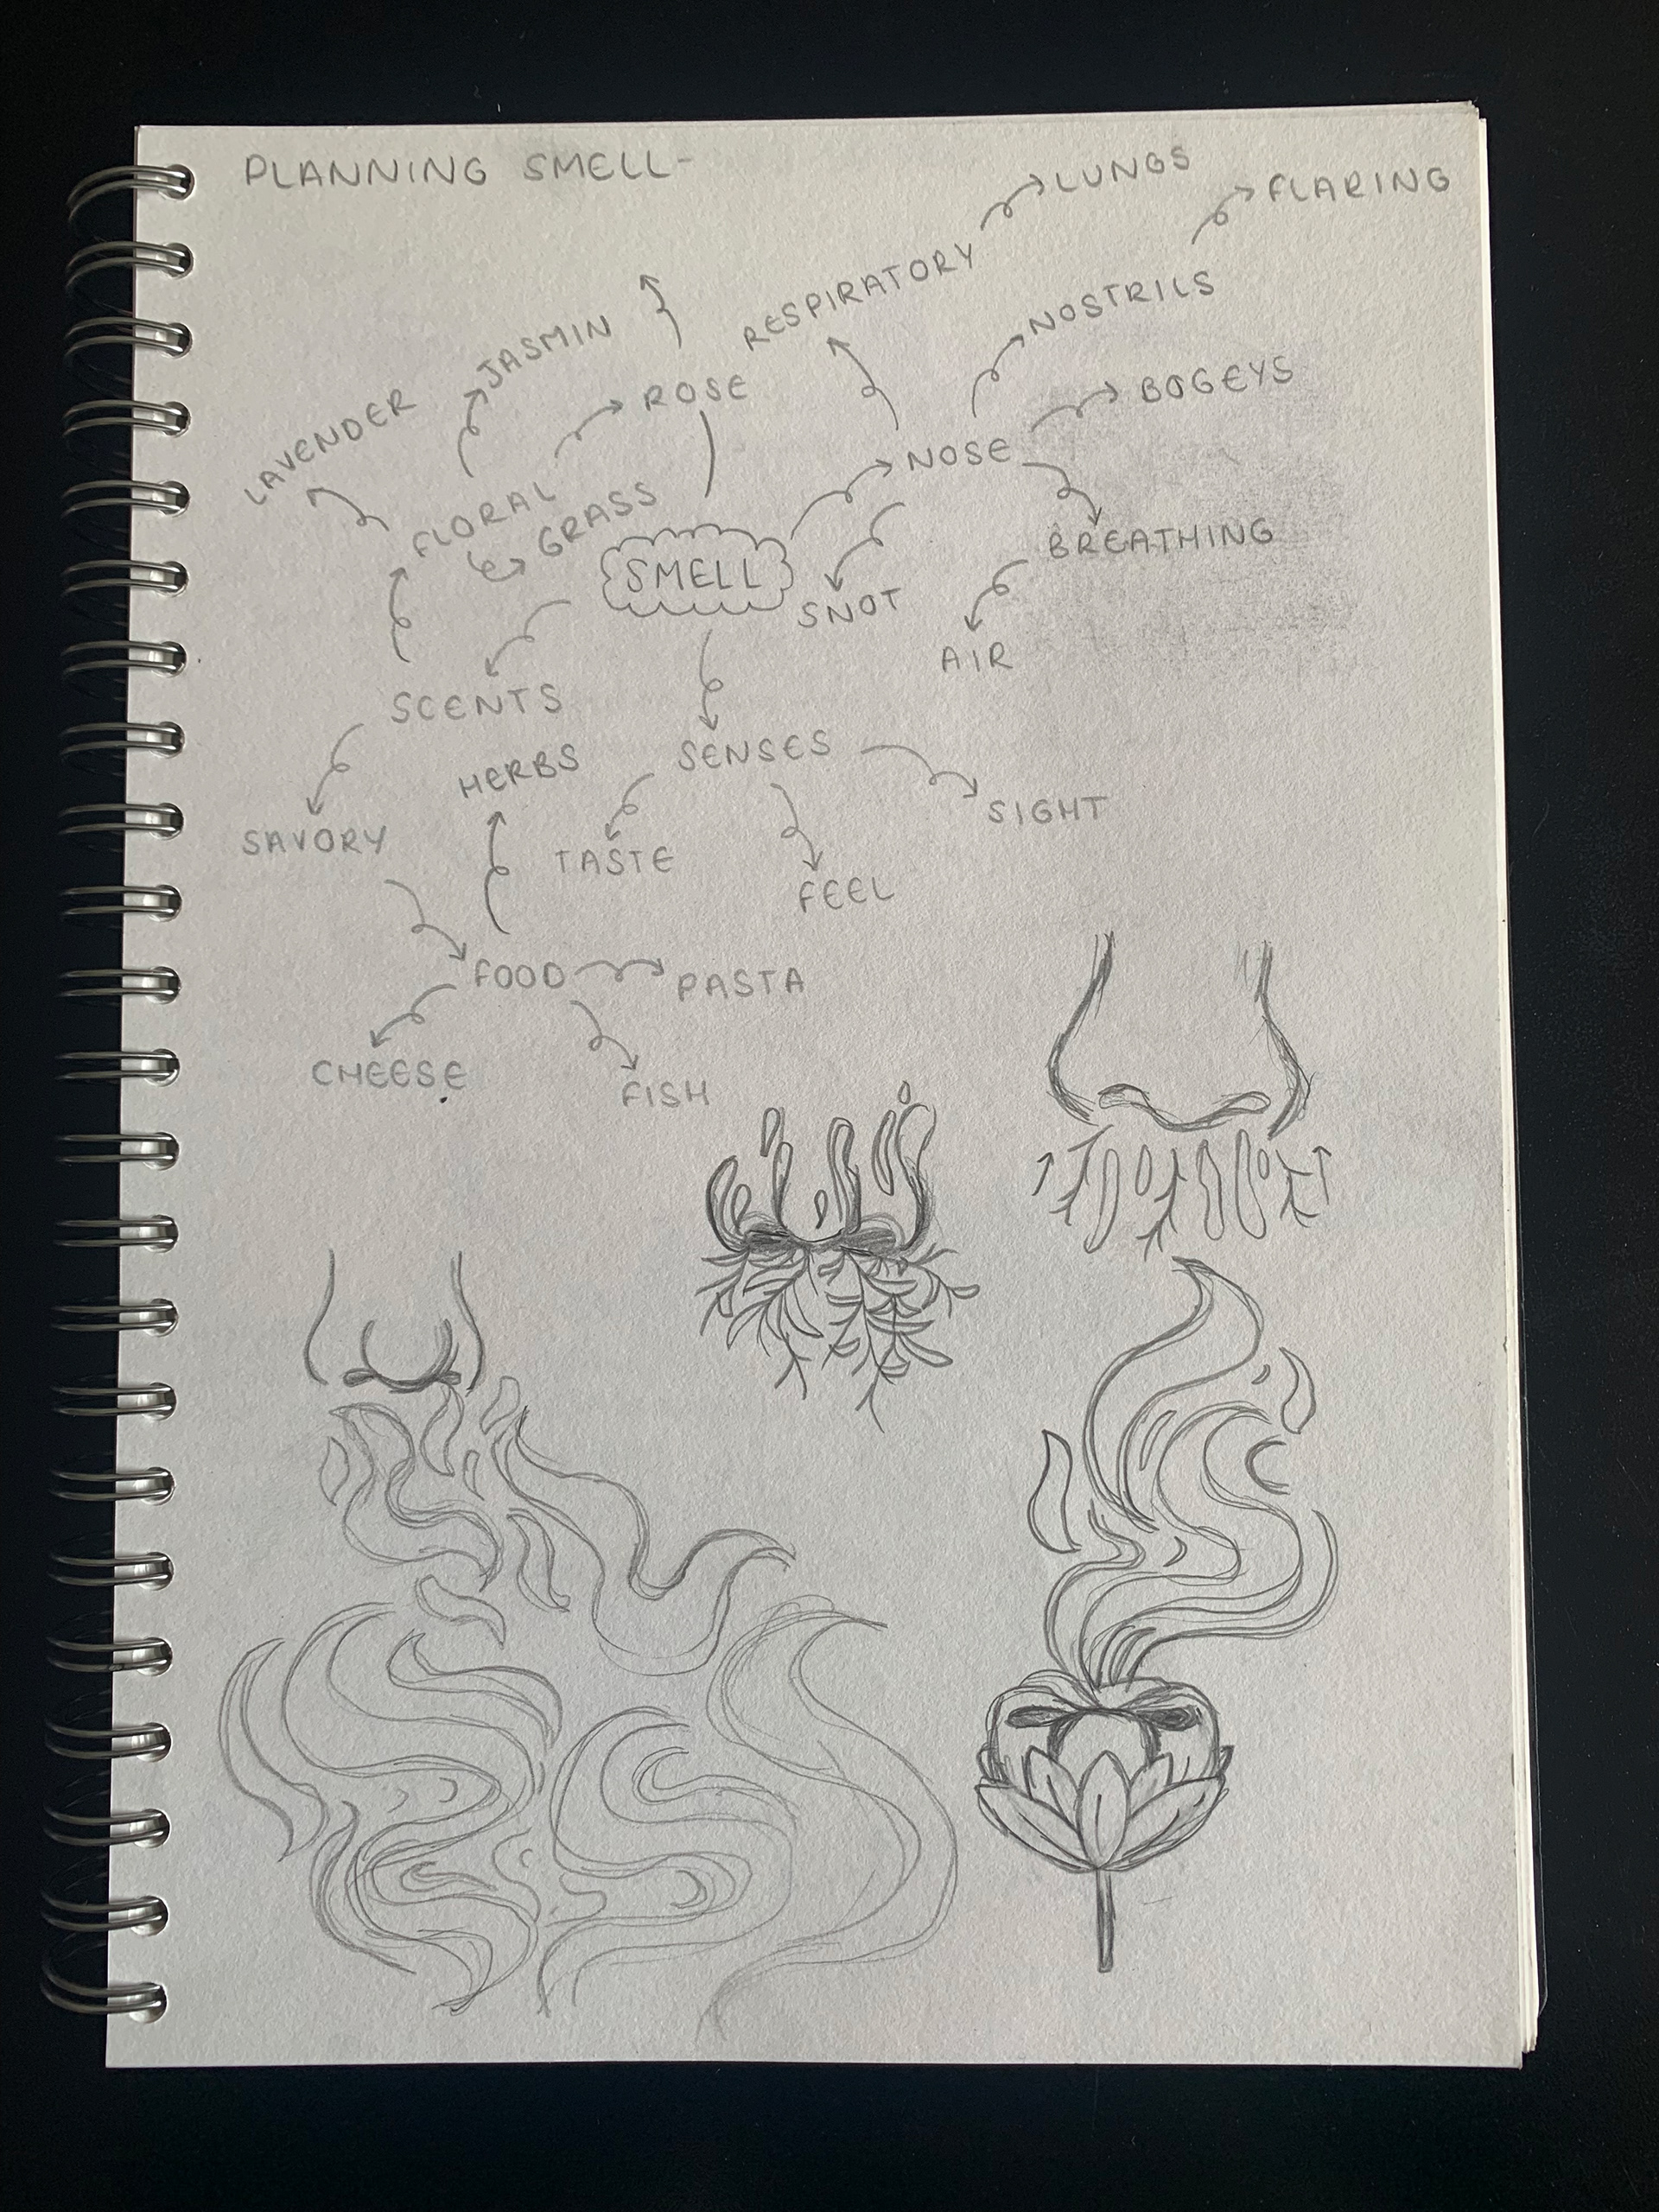 PLANNING SMELL-
LUNGS
FLARING
RESPIRATORY
NOSTRILS
JASMIN
ROSE
BOGEYS
LAVENDER
NOSE
FLORAL
GRASS
BREATHING
SMELL
SNOT
AIR
SCENTS
HERBS
SENSES
SIGHT
SAVORY
TASTE
FEEL
FOOD
PASTA
CHEESE
FISH